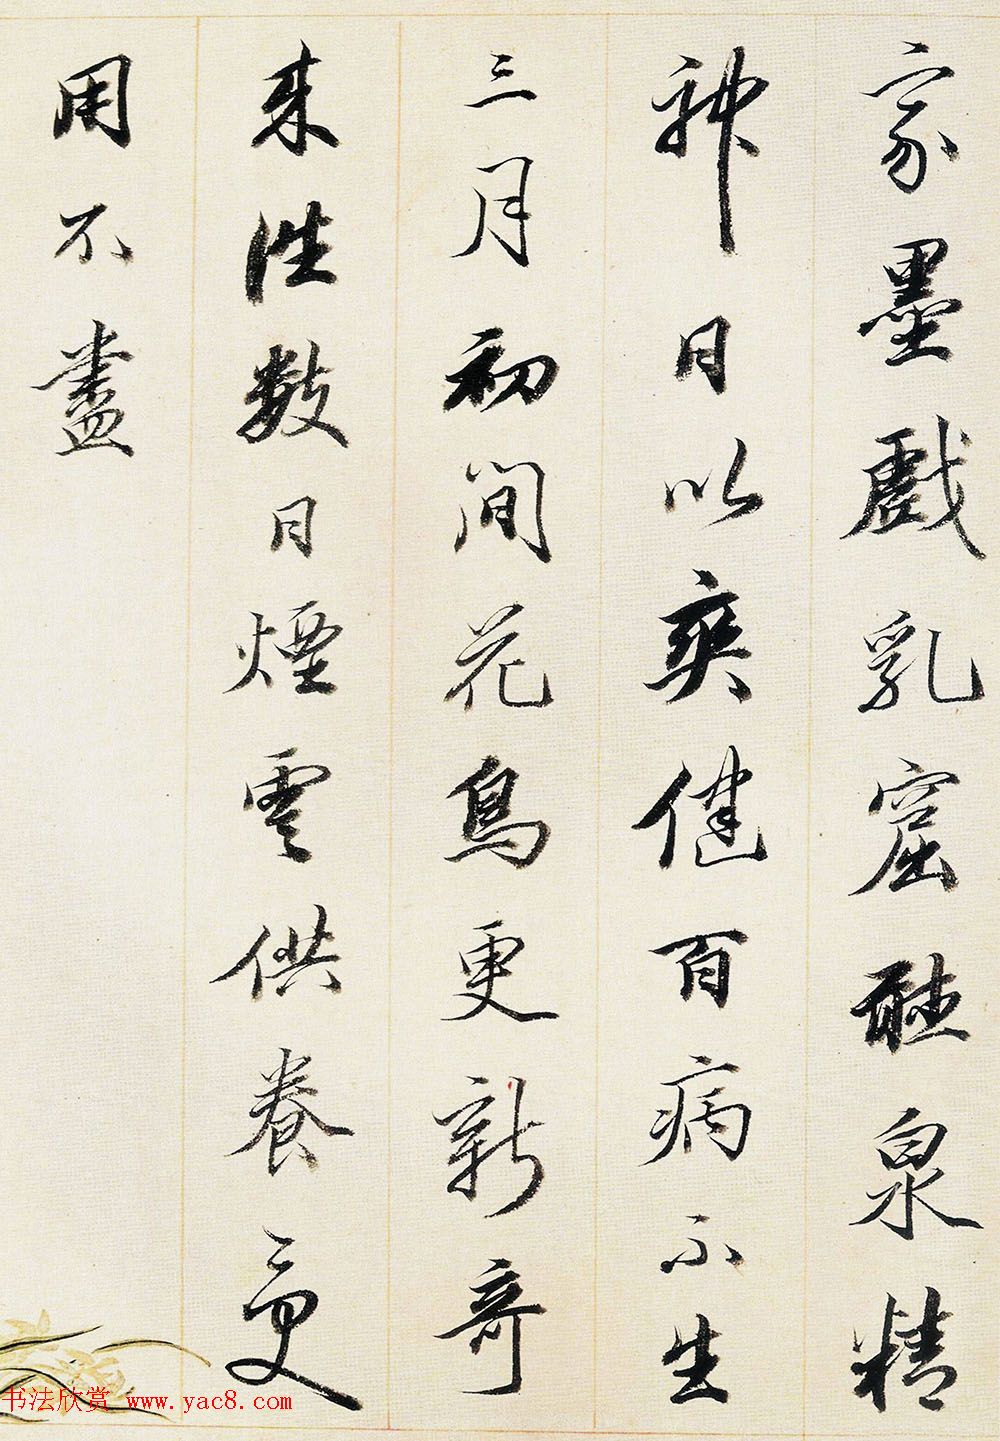 家墨戲乳窟聽泉精
神日以爽健百病不生
三月初間花鳥更新奇
来往數日煙雲供養受
用不盡
书法欣赏 www.yac8.com